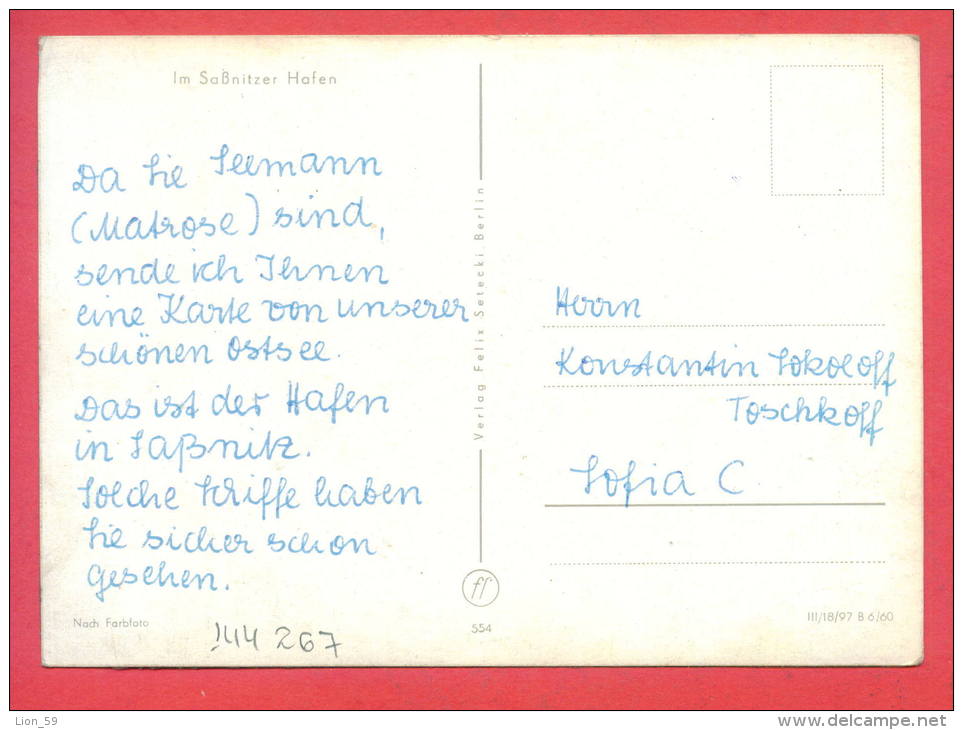 Im Saßnitzer Hafen
Da Sie Seemann
(Matrose) sind,
sende ich Ihnen
eine Karte von unserer
schönen Ostsee.
Das ist der Hafen
in Saßnitz.
Solche Schiffe haben
Sie sicher schon
gesehen.
Nach Farbfoto
144 267
Verlag Felix Setecki, Berlin
ff
554
Herrn
Konstantin Sokoloff
Toschkoff
Sofia C
III/18/97 B 6/60
Lion_59
www.delcampe.net